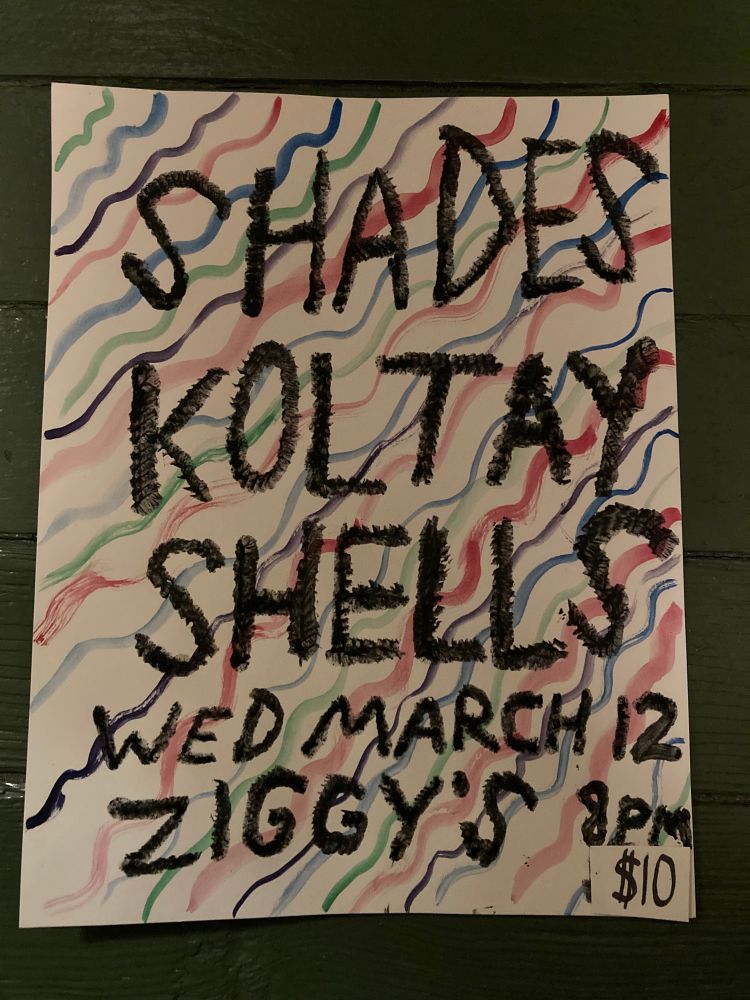 SHADES
KOLTAY
SHELLS
WED MARCH 12
ZIGGY'S 8PM
$10